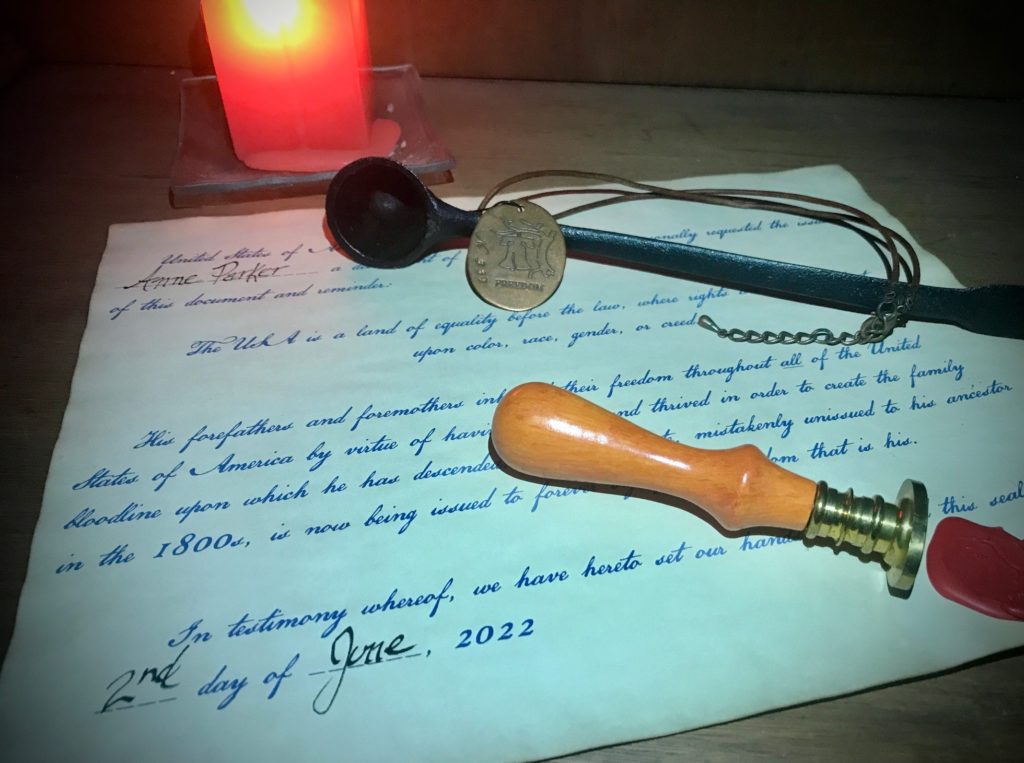 United States of requested the
Anne Parker a of
of this document and reminder:
The USA is a land of equality before the law, where rights
upon color, race, gender, or creed
His forefathers and foremothers their freedom throughout all of the United
States of America by virtue of and thrived in order to create the family
bloodline upon which he has descended mistakenly unissued to his ancestor
in the 1800s, is now being issued to that is his.
In testimony whereof, we have hereto set our this seal
2nd day of June, 2022
FREEDOM